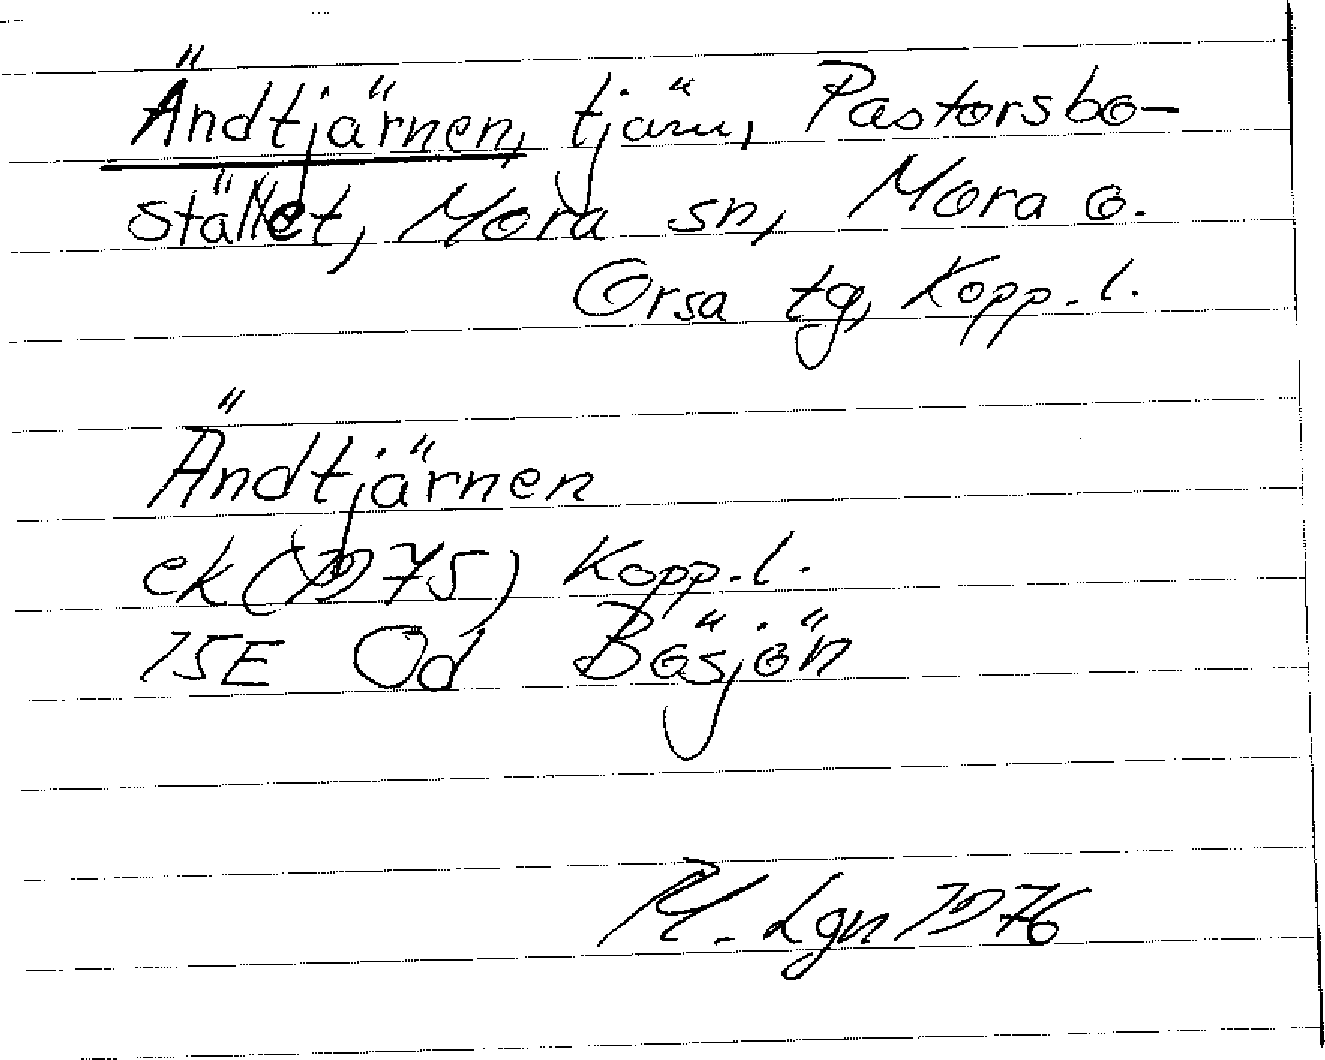 Ändtjärnen, tjärn, Pastorsbo-
stället, Mora sn, Mora o.
Orsa tg, Kopp. l.
Ändtjärnen
ek (1975) Kopp. l.
15E Od Bösjön
Lgn 1976